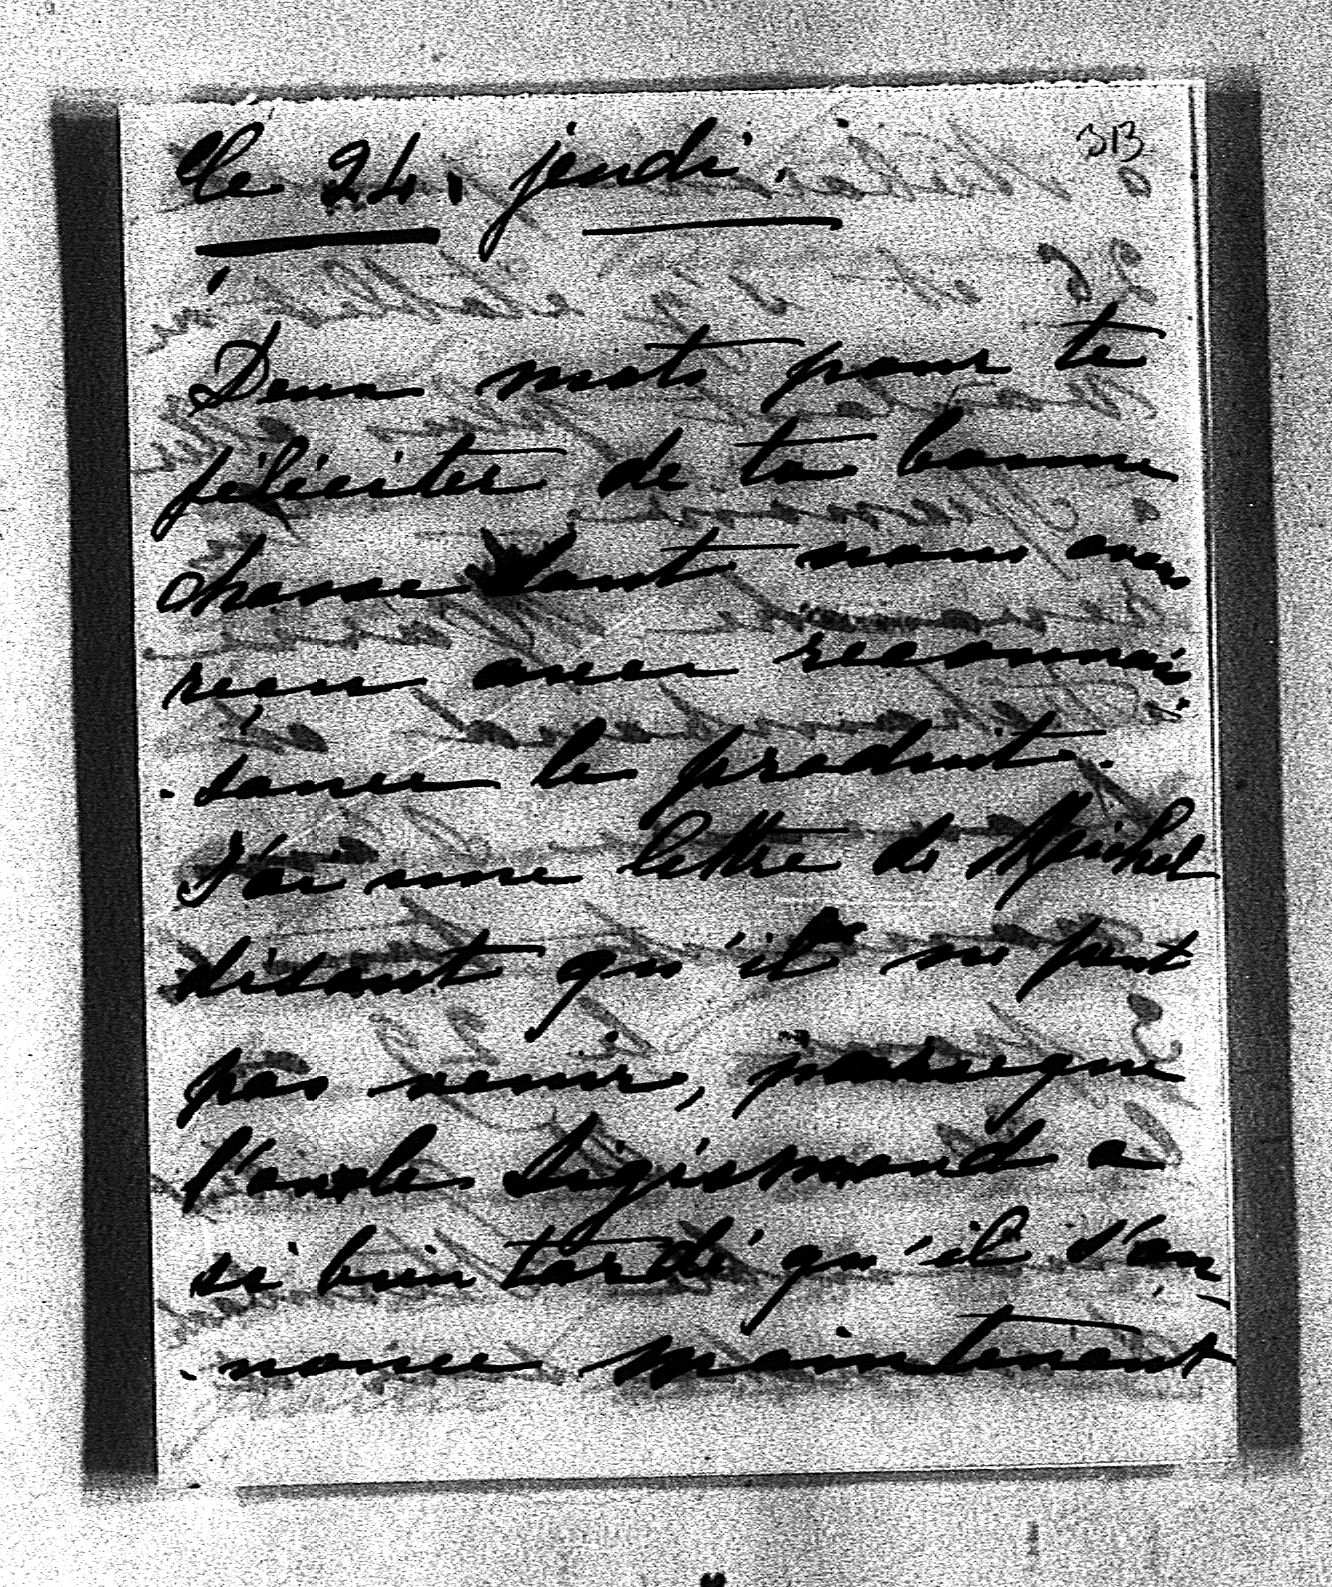 313
le 24. jeudi.
Deux mots pour te
féliciter de ta bonne
chasse dont nous avons
recu avec reconnais
-sance le produit.
J'ai une lettre de Michel
disant qu'il ne peut
pas venir, parceque
l'oncle Sigismond a
si bien tardé qu'il s'an
-nonce maintenant